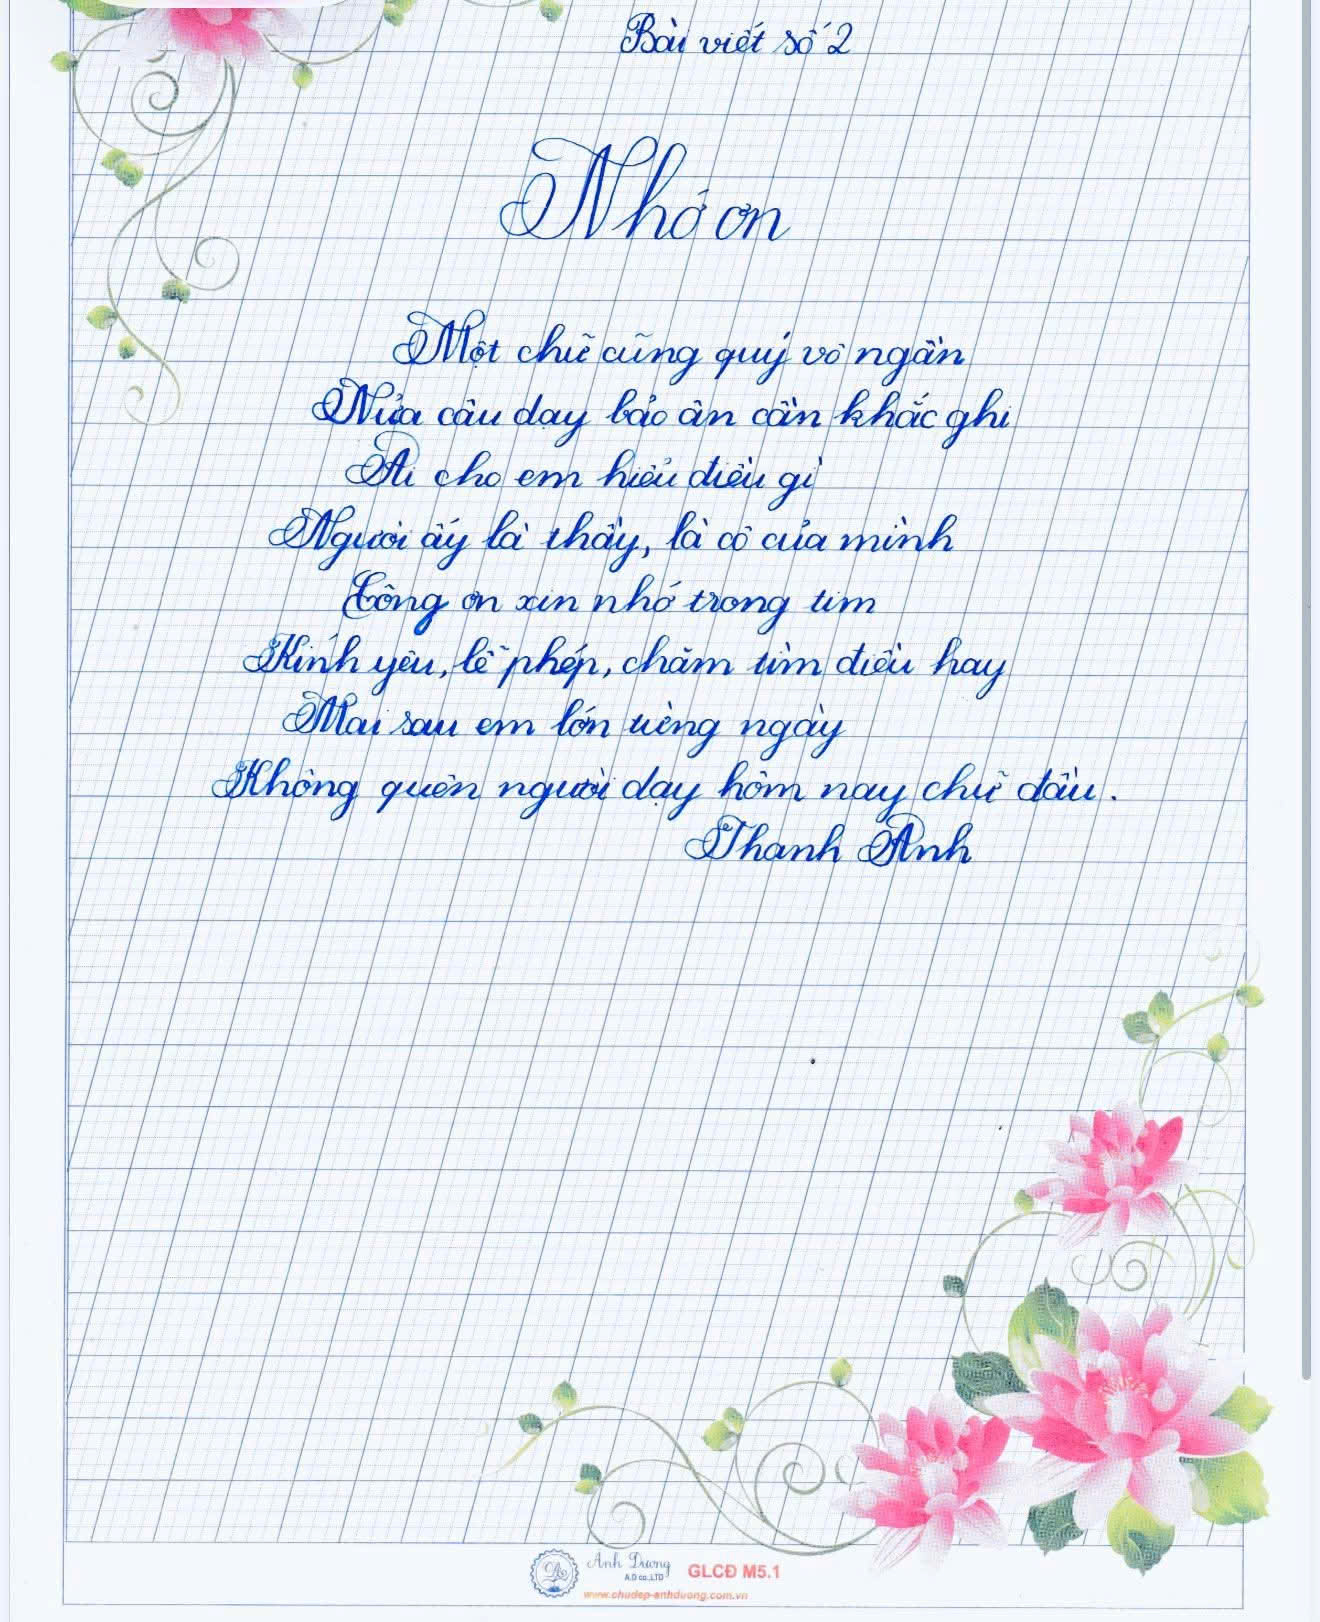 Bài viết số 2
Nhớ ơn
Một chữ cũng quý vô ngần
Nửa câu dạy bảo ân cần khắc ghi
Ai cho em hiểu điều gì
Người ấy là thầy, là cô của mình
Công ơn xin nhớ trong tim
Kính yêu, lễ phép, chăm tìm điều hay
Mai sau em lớn từng ngày
Không quên người dạy hôm nay chữ đầu.
Thanh Anh
Ánh Dương
A.D co.,LTD
GLCĐ M5.1
www.chudep-anhduong.com.vn